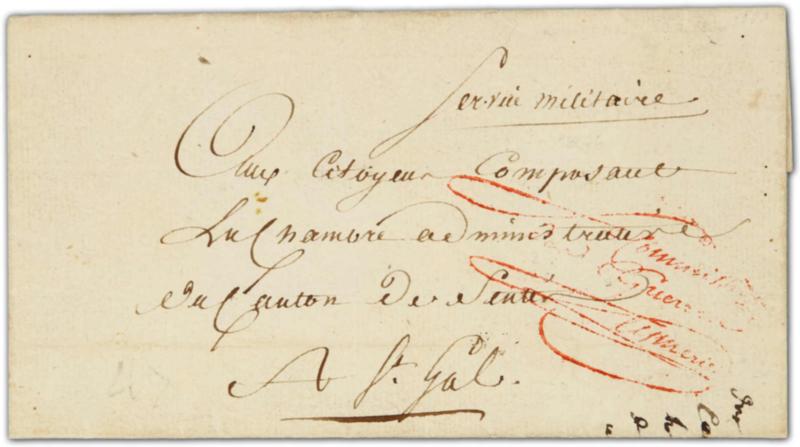 Service militaire
Aux Citoyens Composant
La Chambre administrative
du Canton de Senti
A St. Gal.
Commissaire
Guerre